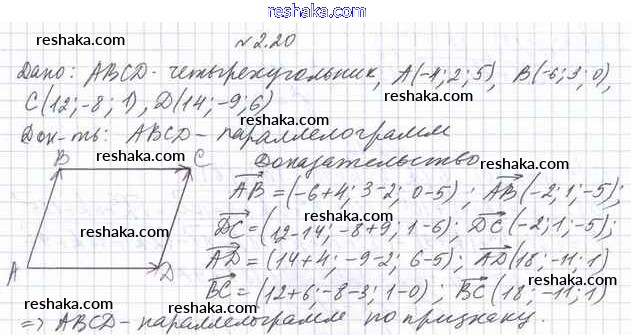 www.reshaka.com
reshaka.com
№2.20
reshaka.com
Дано: ABCD - четырехугольник, A(-4; 2; 5), B(-6; 3; 0),
reshaka.com
C(12; -8; 1), D(14; -9; 6)
Док-ть: ABCD - параллелограмм
B reshaka.com C Доказательство reshaka.com
AB = (-6+4; 3-2; 0-5); AB(-2; 1; -5);
reshaka.com
DC = (12-14; -8+9; 1-6); DC(-2; 1; -5);
AD = (14+4; -9-2; 6-5); AD(18; -11; 1)
A D
BC = (12+6; -8-3; 1-0); BC(18; -11; 1)
reshaka.com reshaka.com reshaka.com
=> ABCD - параллелограмм по признаку.